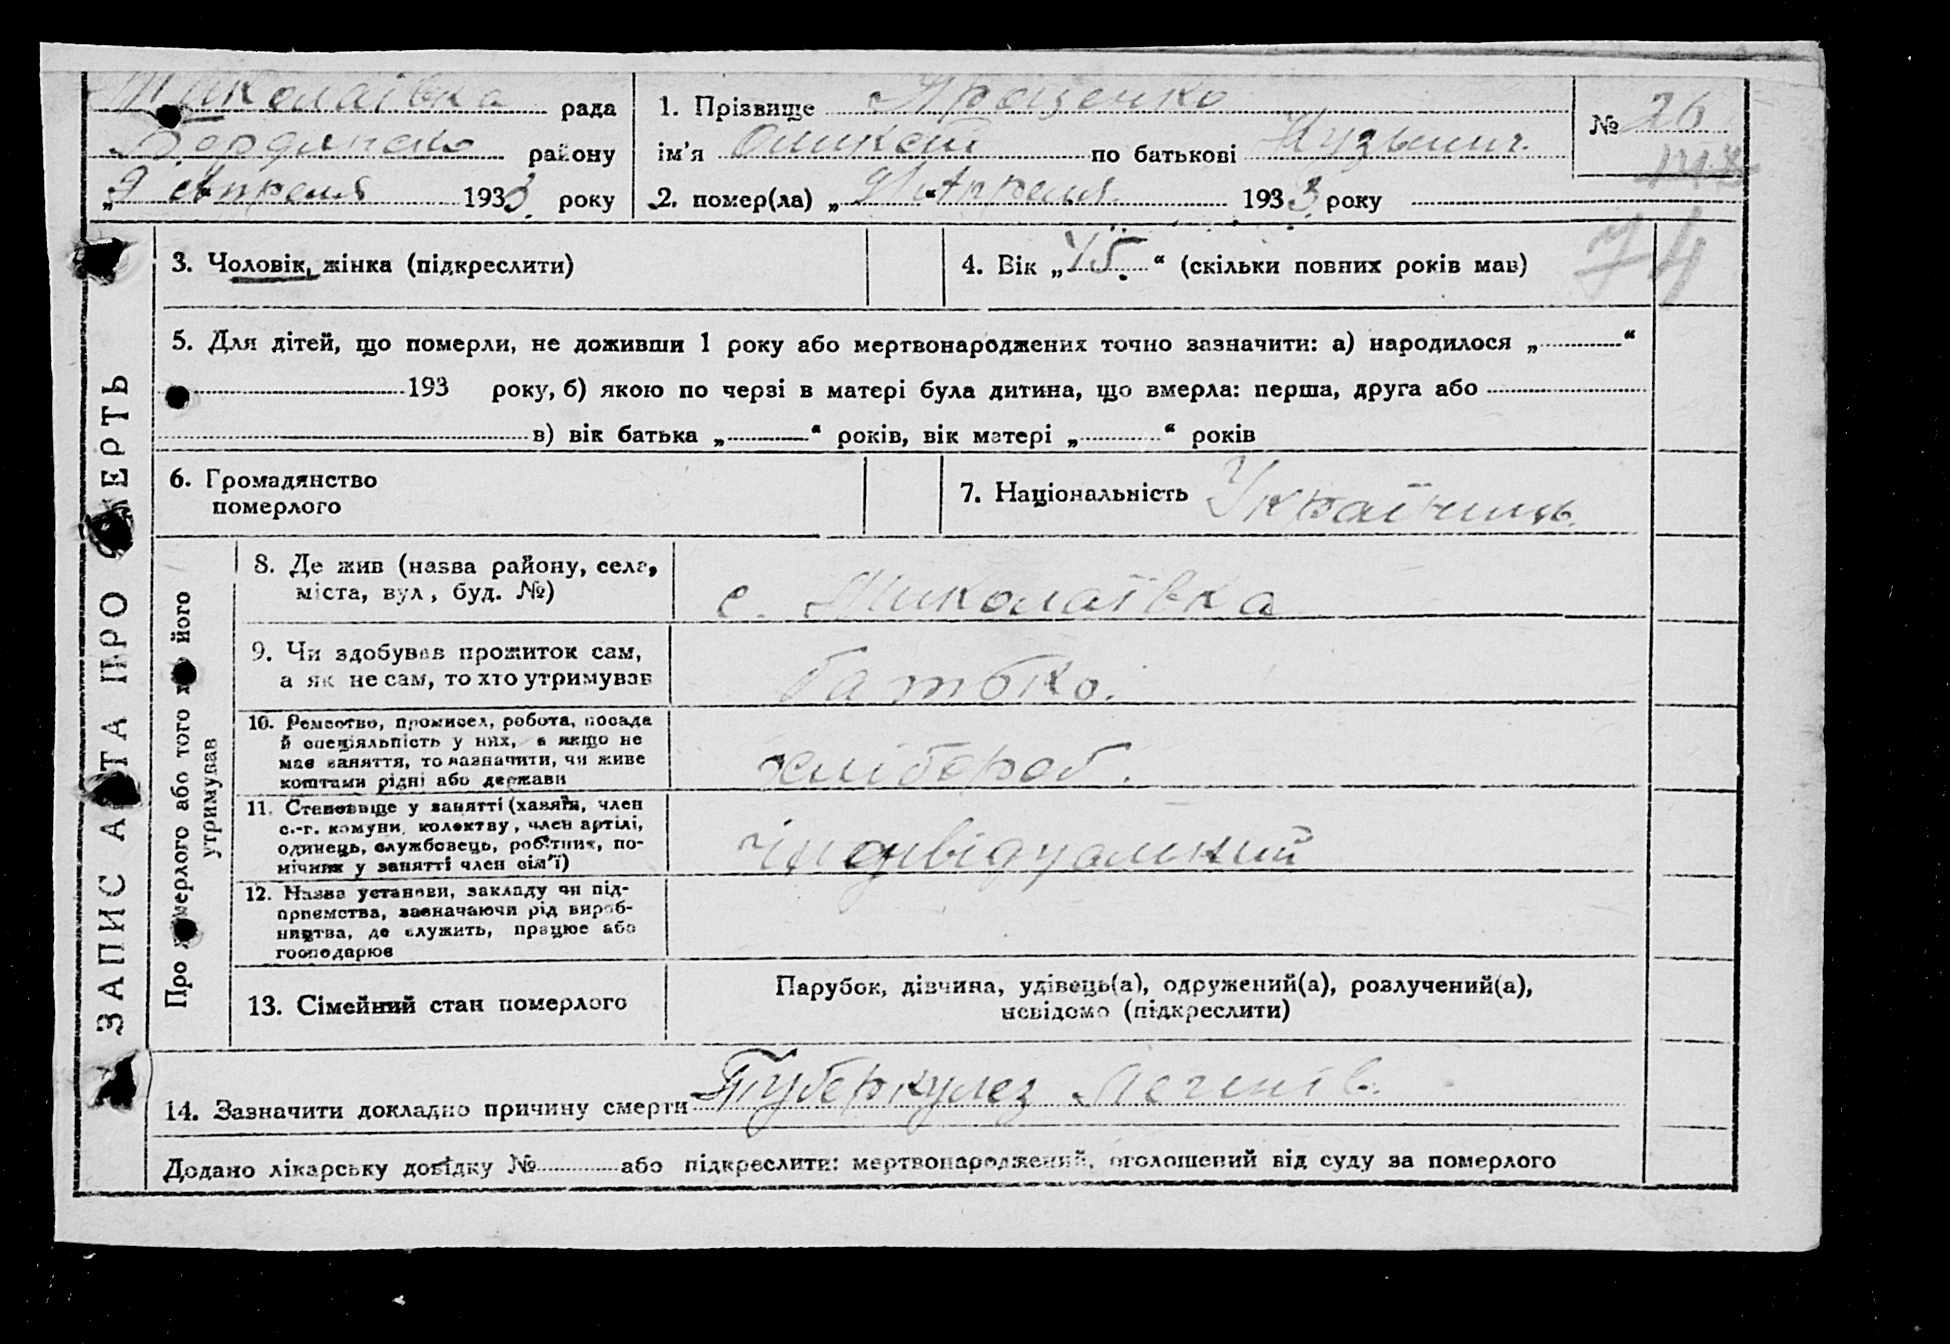 Миколаївка рада
Бердянсько району
„9 Апреля 1933 року
1. Прізвище Ярощенко
ім'я Олексій по батькові Кузьмич.
2. помер(ла) „9“ Апреля 1933 року
№ 26
74
ЗАПИС АКТА ПРО СМЕРТЬ
3. Чоловік, жінка (підкреслити)
4. Вік „15.“ (скільки повних років мав)
5. Для дітей, що померли, не доживши 1 року або мертвонароджених точно зазначити: а) народилося „ “
193 року, б) якою по черзі в матері була дитина, що вмерла: перша, друга або
в) вік батька „ “ років, вік матері „ “ років
6. Громадянство
померлого
7. Національність Українець.
Про померлого або того хто його
утримував
8. Де жив (назва району, села,
міста, вул, буд. №)
с. Миколаївка
9. Чи здобував прожиток сам,
а як не сам, то хто утримував
батько.
10. Ремество, промисел, робота, посада
й спеціяльність у них, а якщо не
має заняття, то зазначити, чи живе
коштами рідні або держави
хлібороб.
11. Становище у занятті (хазяїн, член
с.-г. комуни, колектву, член артілі,
одинець, службовець, робітник, по-
мічник у занятті член сім'ї)
індивідуальний
12. Назва установи, закладу чи під-
приємства, зазначаючи рід вироб-
ництва, де служить, працює або
господарює
13. Сімейний стан померлого
Парубок, дівчина, удівець(а), одружений(а), розлучений(а),
невідомо (підкреслити)
14. Зазначити докладно причину смерти Туберкулез легенів.
Додано лікарську довідку № або підкреслити: мертвонароджений, оголошений від суду за померлого